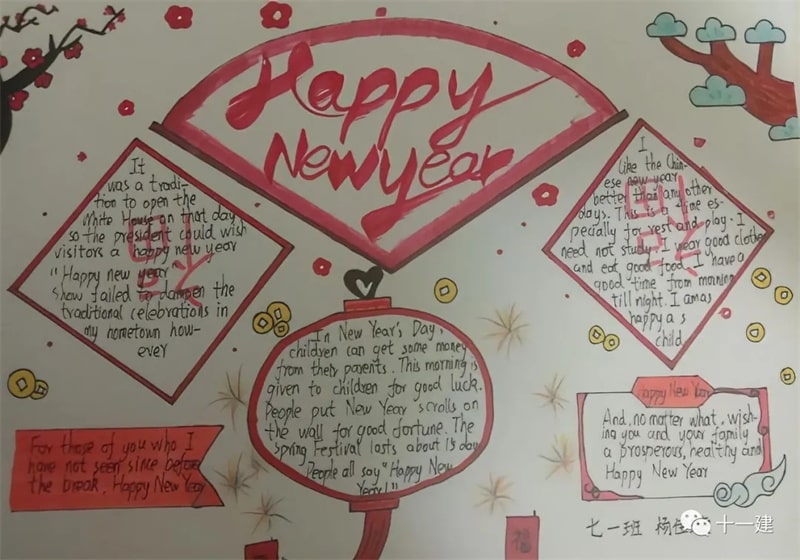 Happy
New year
It
was a tradi-
tion to open the
White House on that day,
so the president could wish
visitors a happy new year
"Happy new year
Show failed to dampen the
traditional celebrations in
my hometown how-
ever
I
like the Chin-
ese new year
better than any other
days. This is a time es-
pecially for rest and play. I
need not study. I wear good clothe
and eat good food. I have a
good time from morning
till night. I am as
happy a s
child
In New Year's Day,
children can get some money
from their parents. This morning is
given to children for good luck.
People put New Year scrolls on
the wall for good fortune. The
Spring Festival lasts about 15 day
People all say "Happy New
Year!"
For those of you who I
have not seen since before
the break, Happy New Year
Happy New Year
And, no matter what, wish-
ing you and your family
a prosperous, healthy and
Happy New Year
福
七一班 杨
十一建